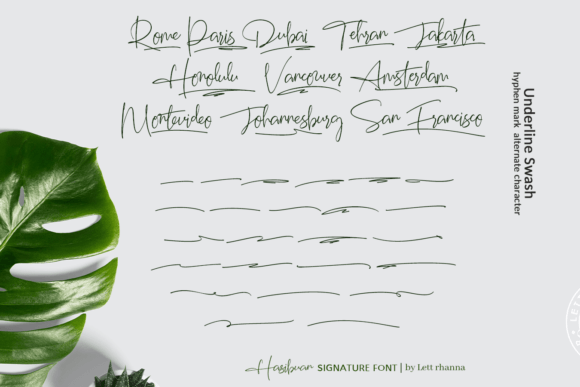 Rome Paris Dubai Tehran Jakarta
Honolulu Vancouver Amsterdam
Montevideo Johannesburg San Francisco
Underline Swash
hyphen mark alternate character
Hasibuan SIGNATURE FONT | by Lett rhanna